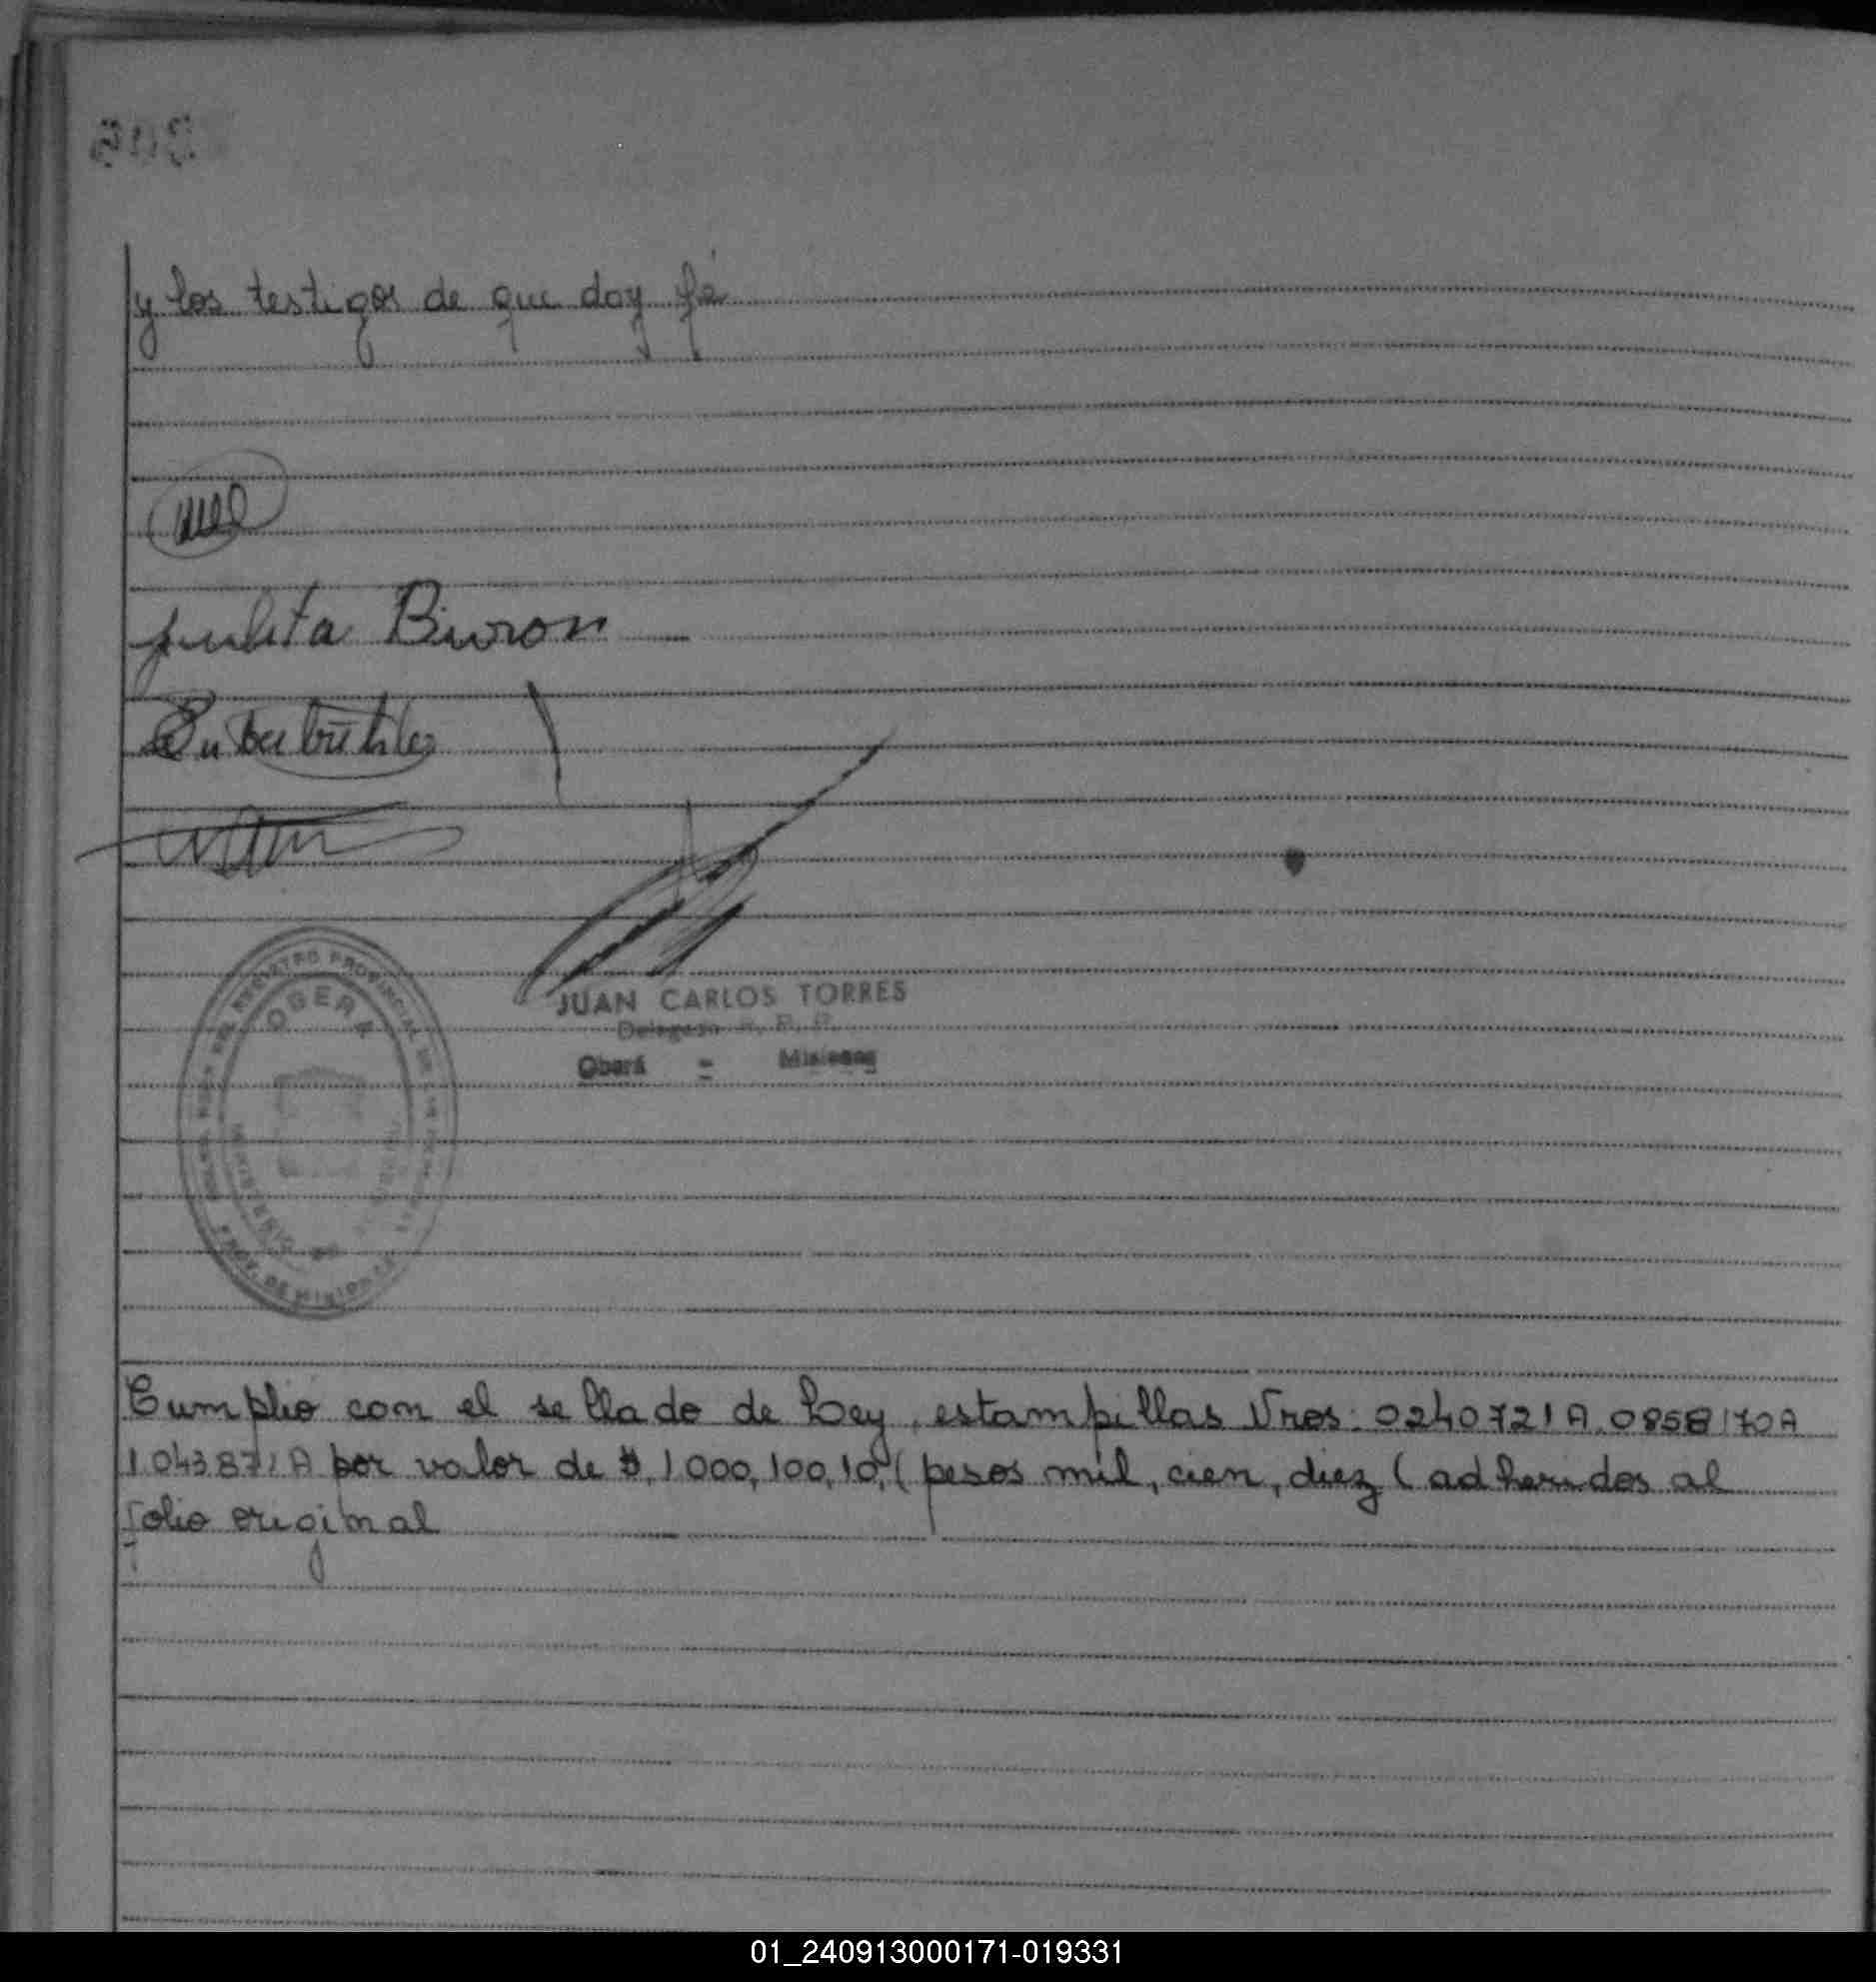 y los testigos de que doy fé
Julita Biron
JUAN CARLOS TORRES
Delegado R. P. P.
Oberá - Misiones
REGISTRO PROVINCIAL DE LAS PERSONAS
OBERA
MINISTERIO DE
PROV. DE MISIONES
Cumplio con el sellado de Ley, estampillas Nros: 0240721A, 0858170A
1043871A por valor de $, 1000, 100, 10, ( pesos mil, cien, diez ( adheridos al
folio original
01_240913000171-019331